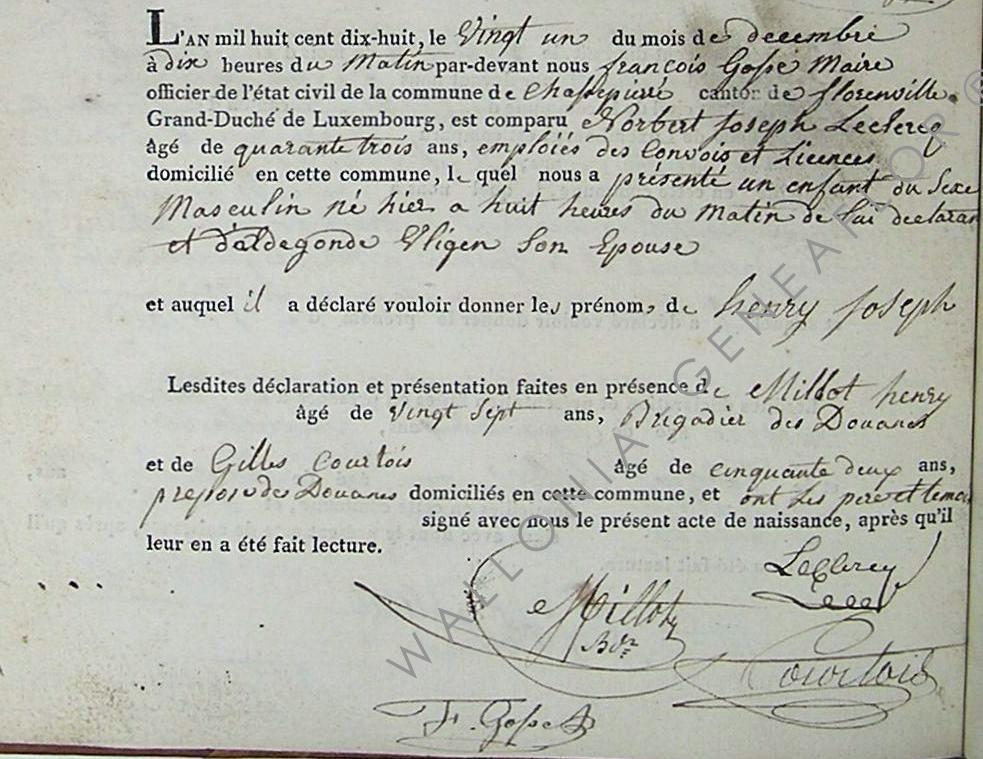 L'AN mil huit cent dix-huit, le Vingt un du mois de decembre
à dix heures du Matin par-devant nous françois Gosse Maire
officier de l'état civil de la commune de Chassepierre canton de florenville.
Grand-Duché de Luxembourg, est comparu Norbert Joseph Leclercq
âgé de quarante trois ans, emploiés des Convois et Licences
domicilié en cette commune, le quel nous a présenté un enfant du Sexe
Masculin né hier a huit heures du matin de lui declaran
et d'aldegonde Uligen Son Epouse
et auquel il a déclaré vouloir donner les prénoms de henry Joseph
Lesdites déclaration et présentation faites en présence de Millot henry
âgé de vingt Sept ans, Brigadier des Douanes
et de Gilles Courtois âgé de cinquante deux ans,
preposé des Douanes domiciliés en cette commune, et ont les pere et temoi
signé avec nous le présent acte de naissance, après qu'il
leur en a été fait lecture.
Leclercq
Millot
Bdr
Courtois
F. Gosse
WALLONIA GENEA FOR ©